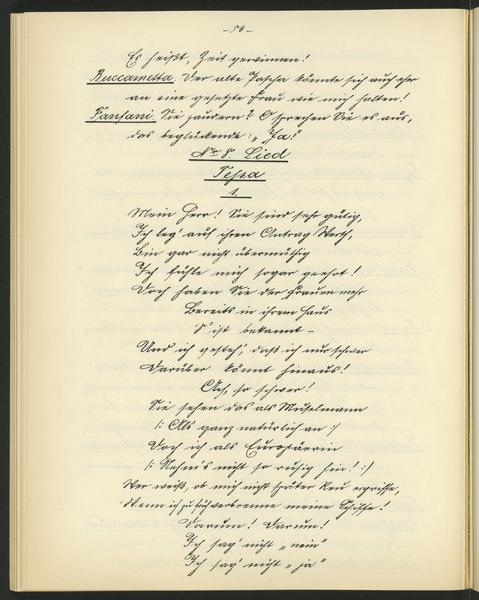 - 56 -
Es heißt, Zeit gewinnen!
Buccametta. Der alte Pascha könnte sich auch eher
an eine gesetzte Frau wie mich halten!
Fanfani. Sie zaudern? O sprechen Sie es aus,
das beglückende: „Ja!“
No 8. Lied
Tessa
1.
Mein Herr! Sie sind sehr gütig,
Ich leg' auf ihren Antrag Werth,
Bin gar nicht übermüthig
Ich fühle mich sogar geehrt!
Doch haben Sie der Frauen mehr
Bereits in ihrem Haus
's ist bekannt –
Und ich gesteh', daß ich nur schwer
Darüber könnt hinaus!
Ach, so schwer!
Sie sehen das als Muselmann
/: Als ganz natürlich an :/
Doch ich als Europäerin
/: Nehm's nicht so ruhig hin! :/
Wer weiß, ob mich nicht später Reu ergriffe,
Wenn ich zu früh verbrenne meine Schiffe!
Darum! Darum!
Ich sag' nicht „nein“
Ich sag' nicht „ja“